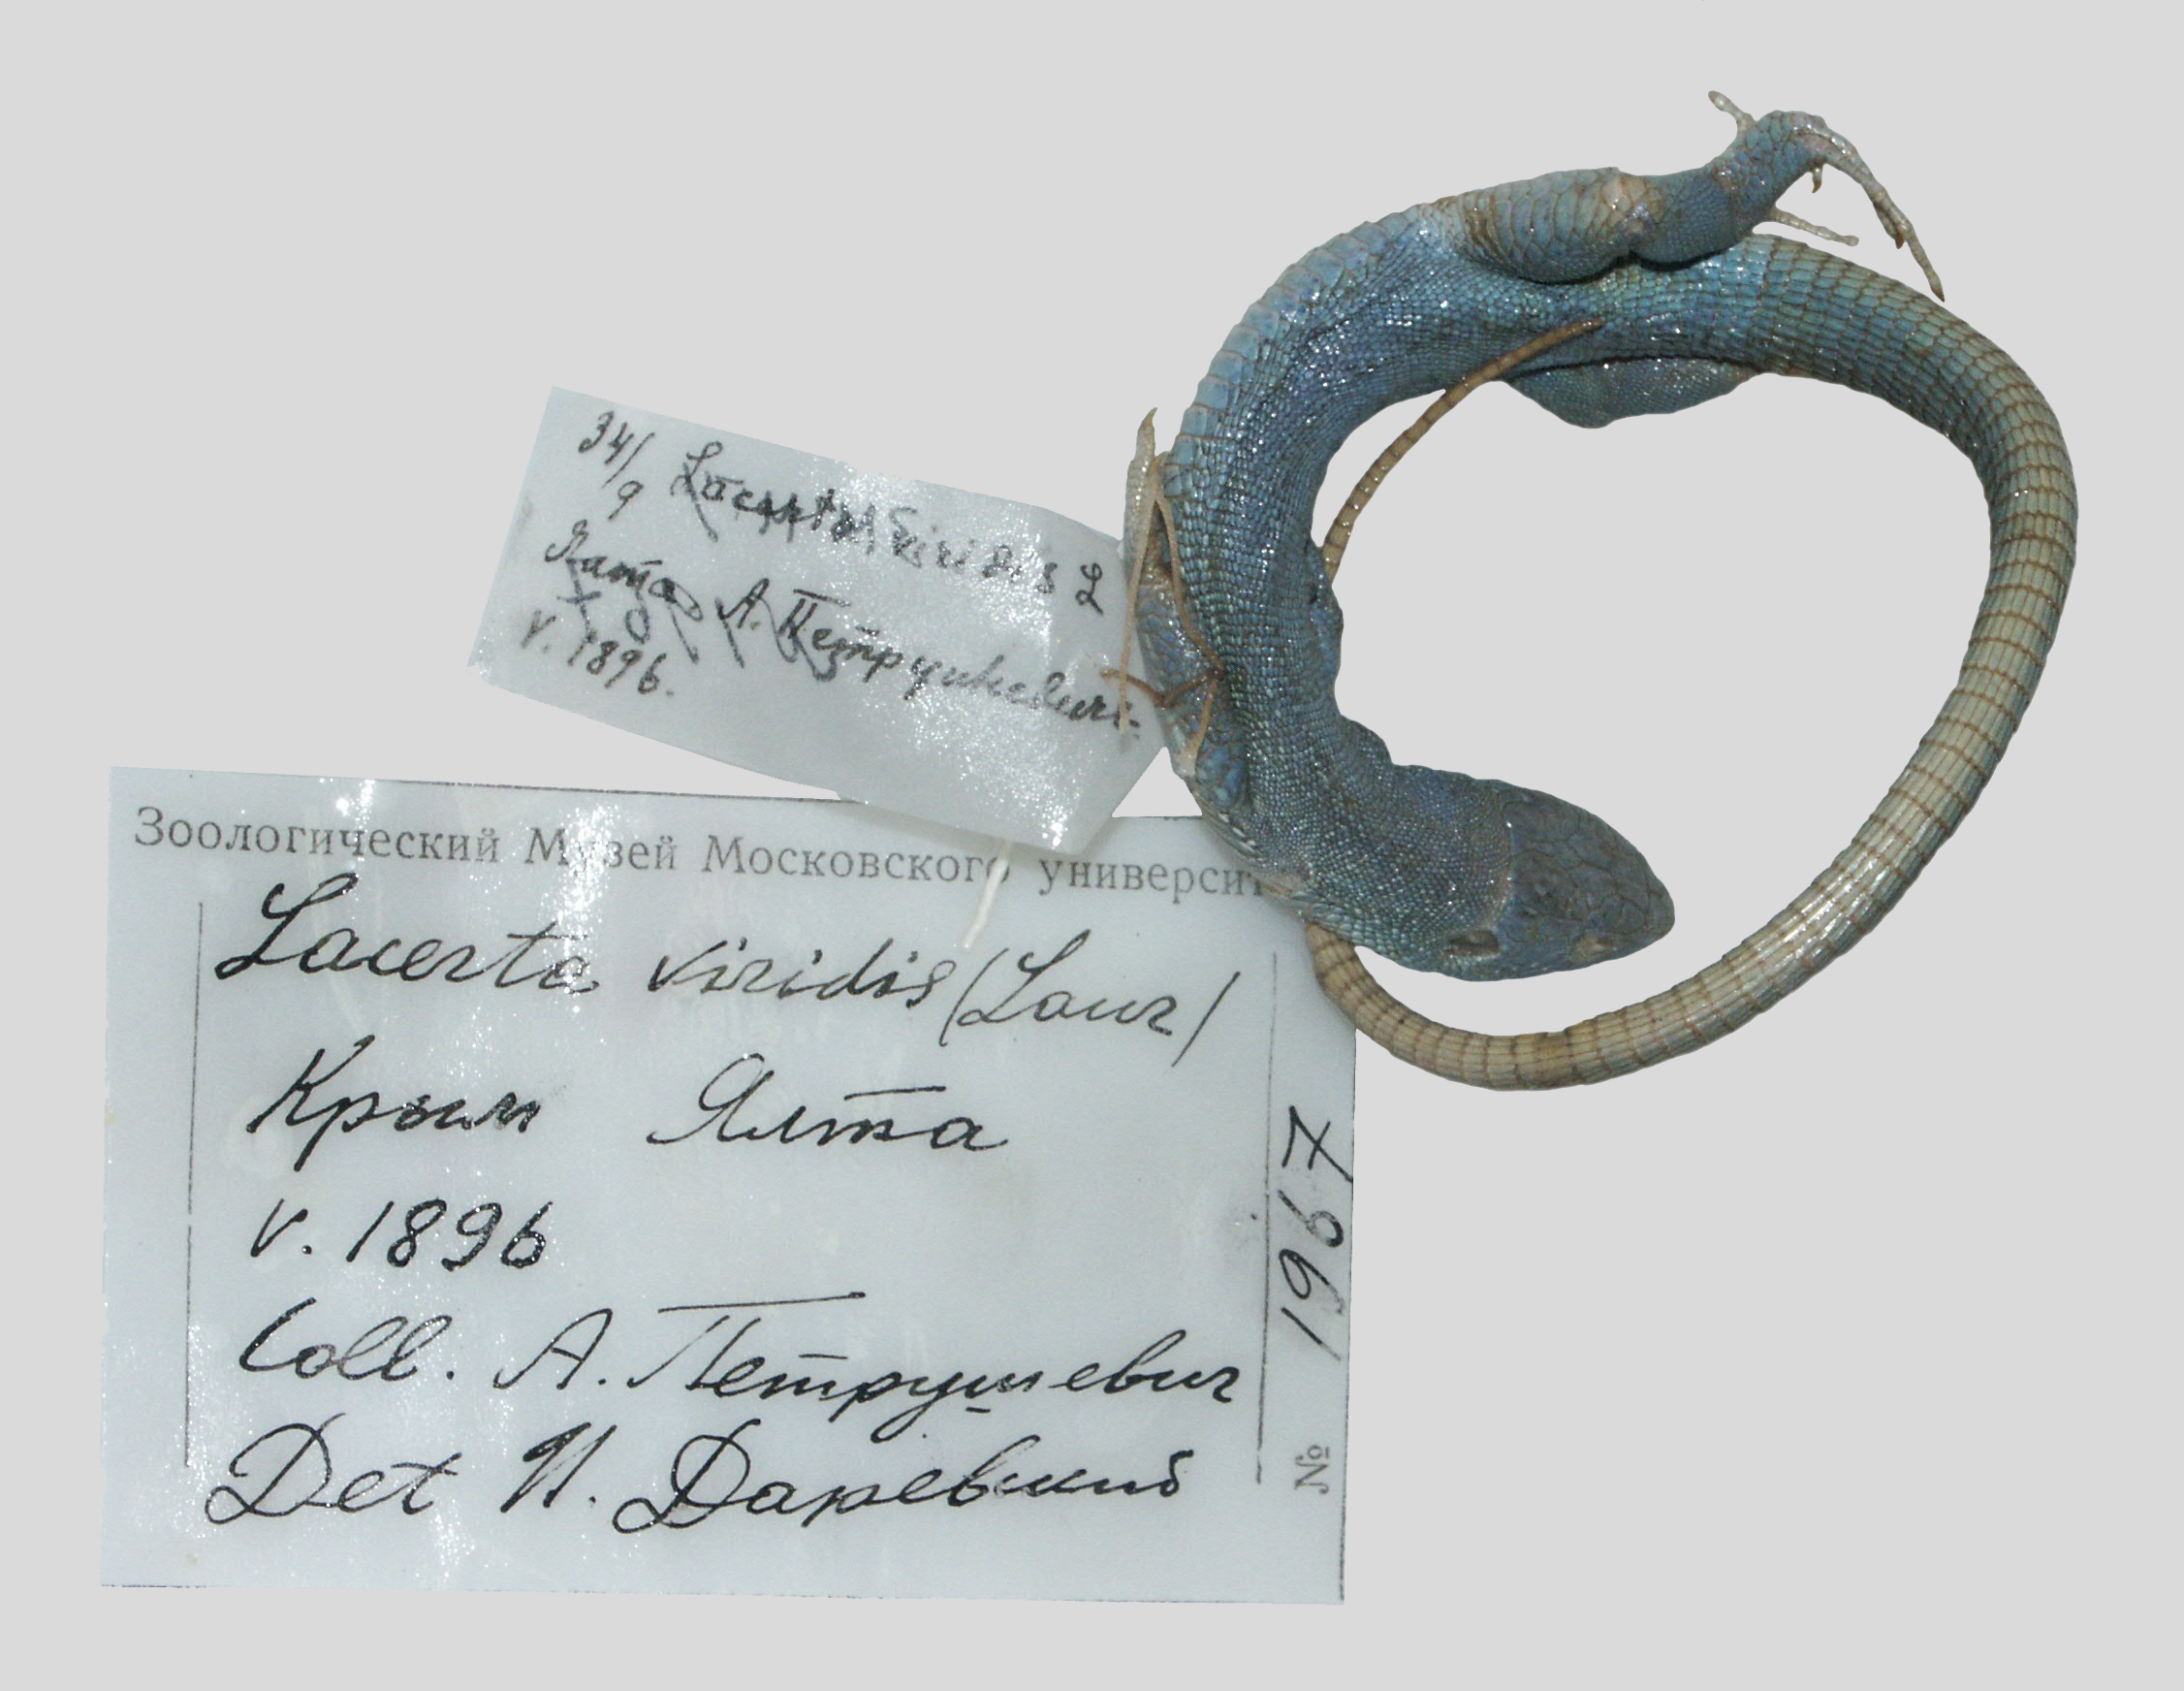 34/9 Lacerta viridis L
Ялта А. Петрункевич
V. 1896.
Зоологический Музей Московского университ
Lacerta viridis (Laur)
Крым Ялта
V. 1896
Coll. А. Петрушевич
Det И. Даревский
№ 1967